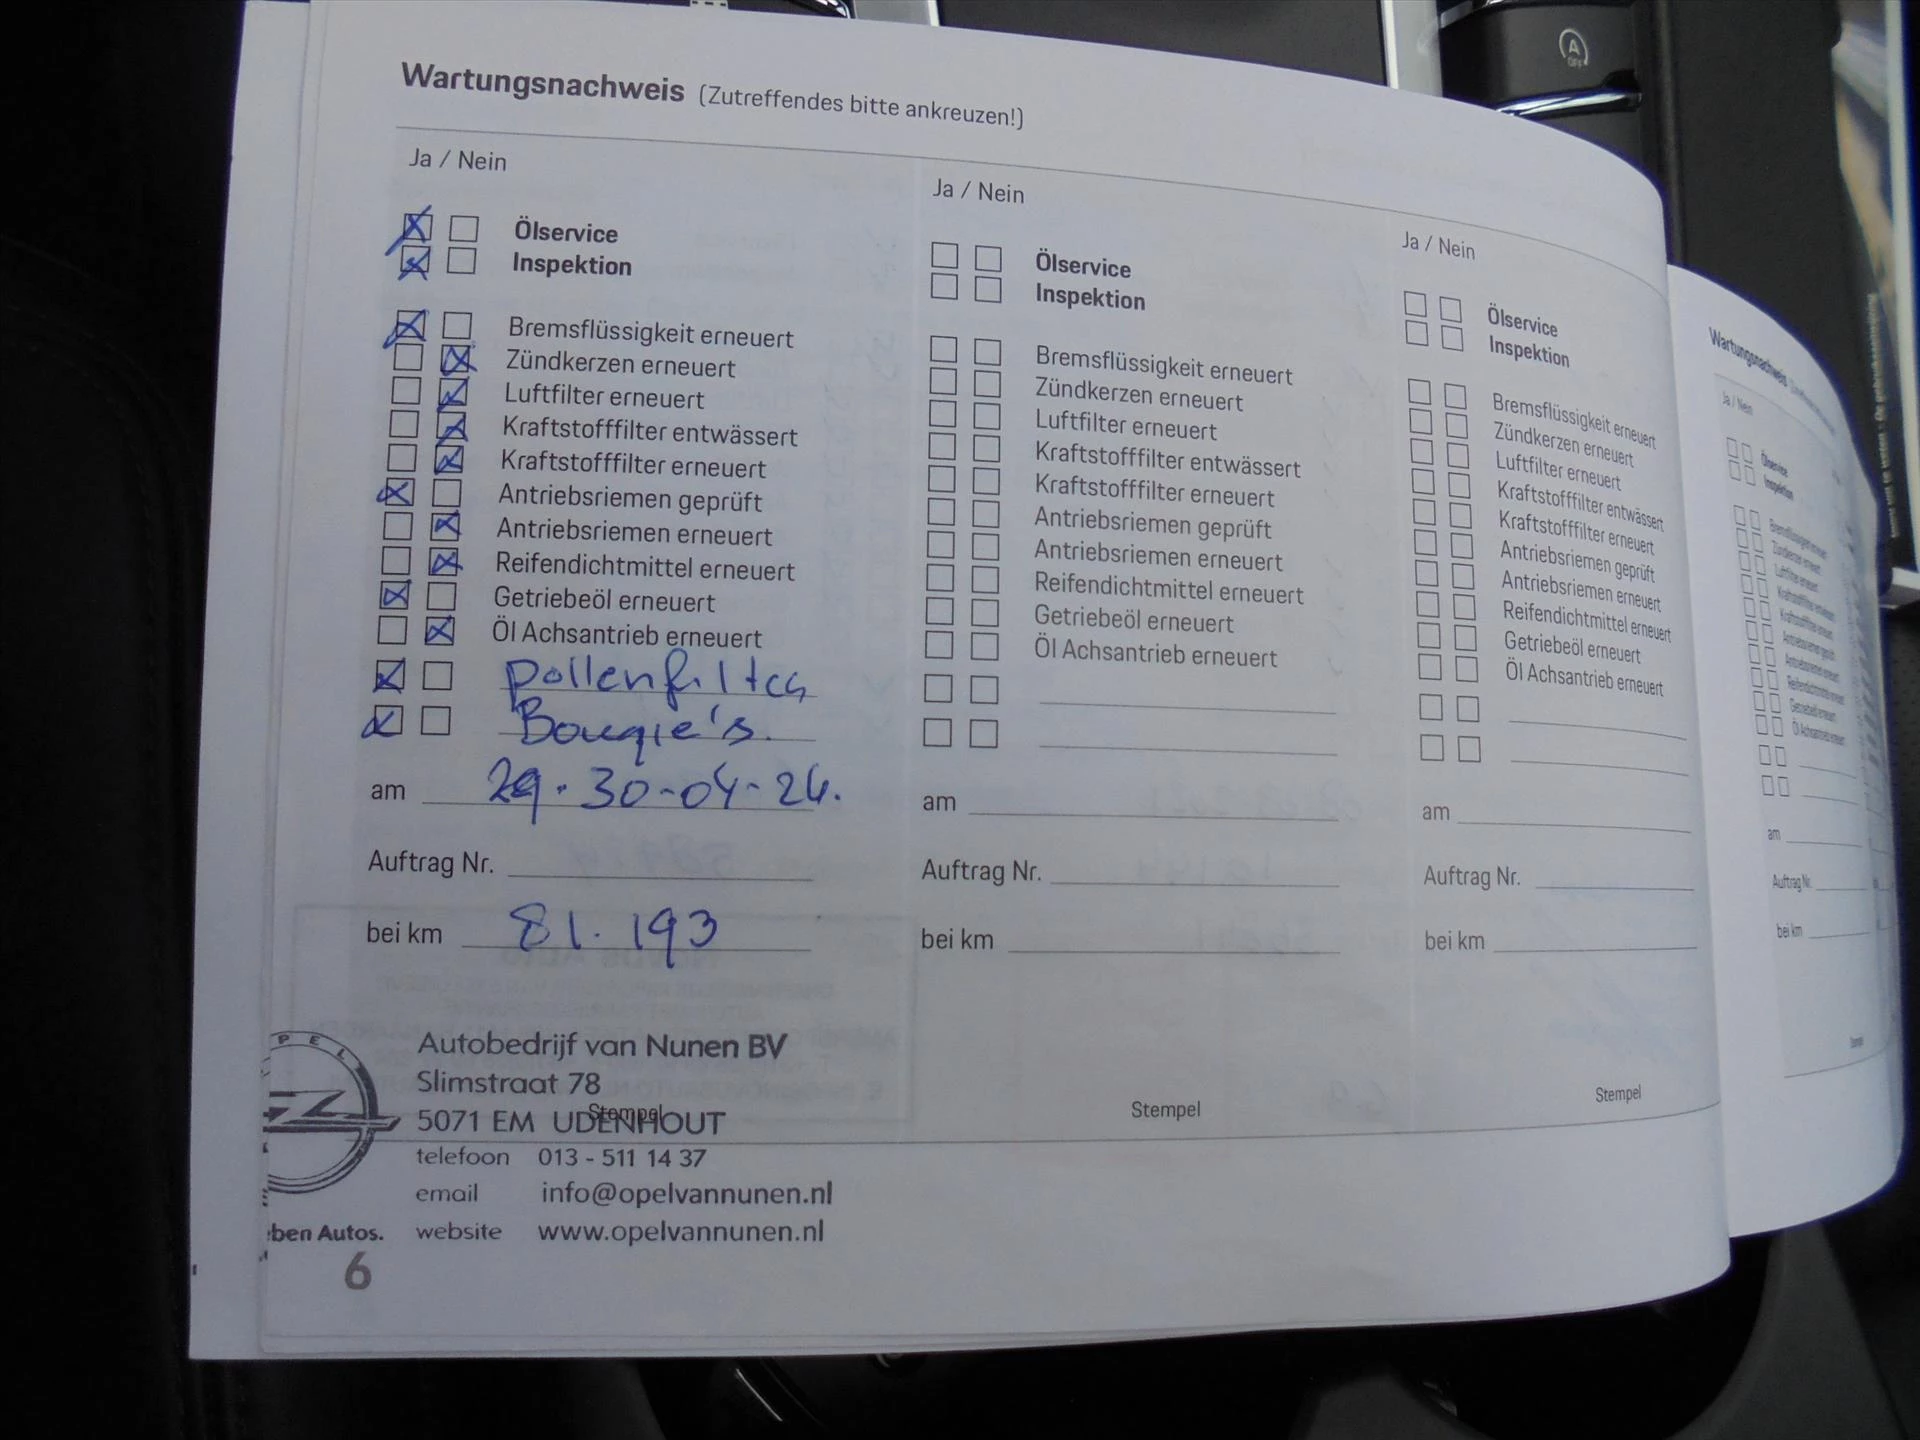 Wartungsnachweis (Zutreffendes bitte ankreuzen!)
Ja / Nein
Ölservice
Inspektion
Bremsflüssigkeit erneuert
Zündkerzen erneuert
Luftfilter erneuert
Kraftstofffilter entwässert
Kraftstofffilter erneuert
Antriebsriemen geprüft
Antriebsriemen erneuert
Reifendichtmittel erneuert
Getriebeöl erneuert
Öl Achsantrieb erneuert
pollenfilter
Bougie's.
am 29. 30-04-24.
Auftrag Nr.
bei km 81.193
Stempel
OPEL
Autobedrijf van Nunen BV
Slimstraat 78
5071 EM UDENHOUT
telefoon 013 - 511 14 37
email info@opelvannunen.nl
ben Autos. website www.opelvannunen.nl
6
Ja / Nein
Ölservice
Inspektion
Bremsflüssigkeit erneuert
Zündkerzen erneuert
Luftfilter erneuert
Kraftstofffilter entwässert
Kraftstofffilter erneuert
Antriebsriemen geprüft
Antriebsriemen erneuert
Reifendichtmittel erneuert
Getriebeöl erneuert
Öl Achsantrieb erneuert
am
Auftrag Nr.
bei km
Stempel
Ja / Nein
Ölservice
Inspektion
Bremsflüssigkeit erneuert
Zündkerzen erneuert
Luftfilter erneuert
Kraftstofffilter entwässert
Kraftstofffilter erneuert
Antriebsriemen geprüft
Antriebsriemen erneuert
Reifendichtmittel erneuert
Getriebeöl erneuert
Öl Achsantrieb erneuert
am
Auftrag Nr.
bei km
Stempel
Wartungsnachweis
Ja / Nein
Ölservice
Inspektion
Bremsflüssigkeit erneuert
Zündkerzen erneuert
Luftfilter erneuert
Kraftstofffilter entwässert
Kraftstofffilter erneuert
Antriebsriemen geprüft
Antriebsriemen erneuert
Reifendichtmittel erneuert
Getriebeöl erneuert
Öl Achsantrieb erneuert
am
Auftrag Nr.
bei km
Stempel
A
OFF